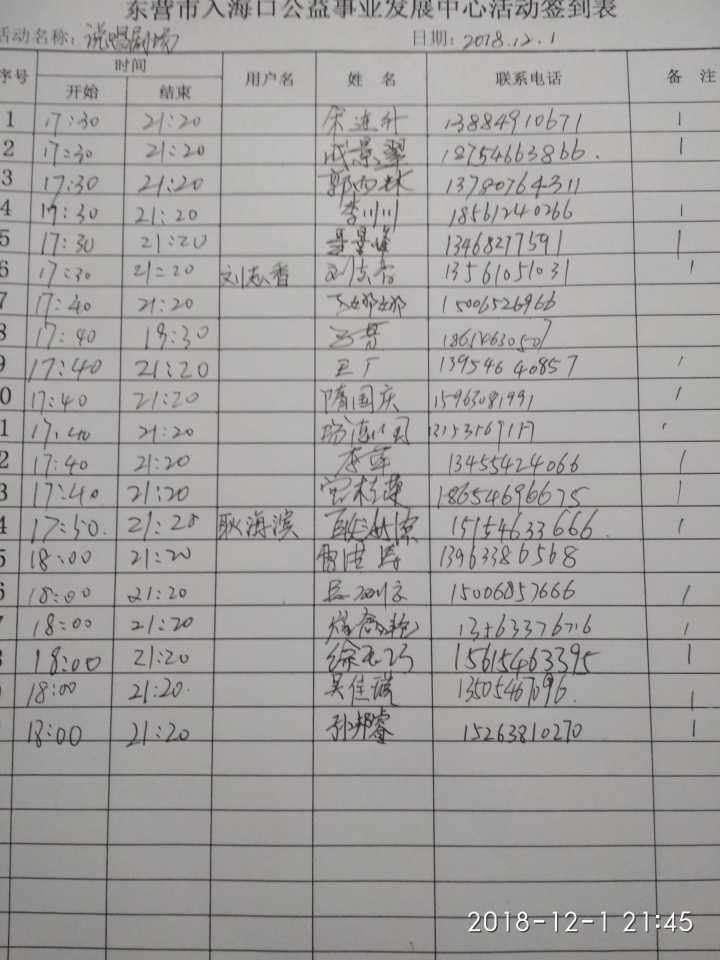 东营市入海口公益事业发展中心活动签到表
活动名称: 说唱剧场 日期: 2018.12.1
序号 时间 用户名 姓名 联系电话 备注
开始 结束
1 17:30 21:20 宋连升 13884910671 1
2 17:30 21:20 成景翠 18754663866. 1
3 17:30 21:20 13780764311
4 17:30 21:20 李川川 18561240266 1
5 17:30 21:20 13468277591 1
6 17:30 21:20 刘志香 刘志香 13561051031 1
7 17:40 21:20 15006526966
8 17:40 19:30
9 17:40 21:20 13954640857 1
0 17:40 21:20 隋国庆 15963081991 1
1 17:40 21:20
2 17:40 21:20 李萍 13455424066 1
3 17:40 21:20 18654696675 1
4 17:50. 21:20 耿海滨 耿海滨 15154633666. 1
5 18:00 21:20 13963386568
6 18:00 21:20 15006857666 1
7 18:00 21:20 1
8 18:00 21:20 15615463395 1
18:00 21:20. 吴佳璇 13505467096. 1
18:00 21:20 孙邦睿 15263810270 1
2018-12-1 21:45